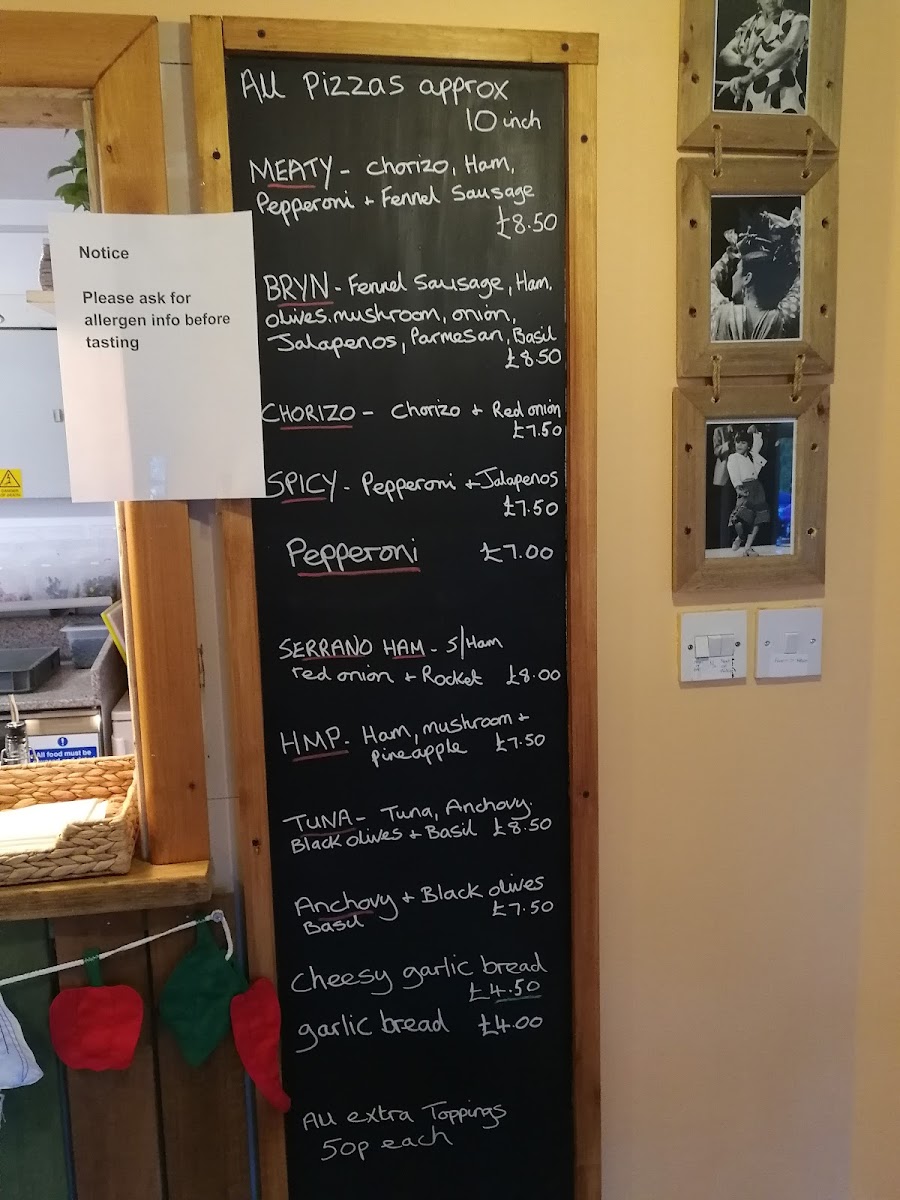 All Pizzas approx
10 inch
MEATY - Chorizo, Ham,
Pepperoni + Fennel Sausage
£8.50
BRYN - Fennel Sausage, Ham,
olives, mushroom, onion,
Jalapenos, Parmesan, Basil
£8.50
CHORIZO - Chorizo + Red onion
£7.50
SPICY - Pepperoni + Jalapenos
£7.50
Pepperoni £7.00
SERRANO HAM - S/Ham
red onion + Rocket £8.00
HMP. Ham, mushroom +
pineapple £7.50
TUNA - Tuna, Anchovy.
Black olives + Basil £8.50
Anchovy + Black olives
Basil £7.50
Cheesy garlic bread
£4.50
garlic bread £4.00
All extra Toppings
50p each
Notice
Please ask for
allergen info before
tasting
All food must be